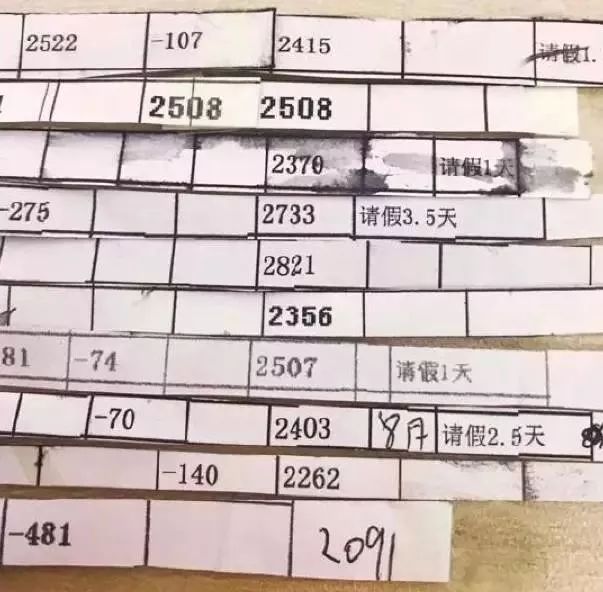 2522 -107 2415 请假1.
2508 2508
2370 请假1天
-275 2733 请假3.5天
2821
2356
81 -74 2507 请假1天
-70 2403 8月 请假2.5天
-140 2262
-481 2091